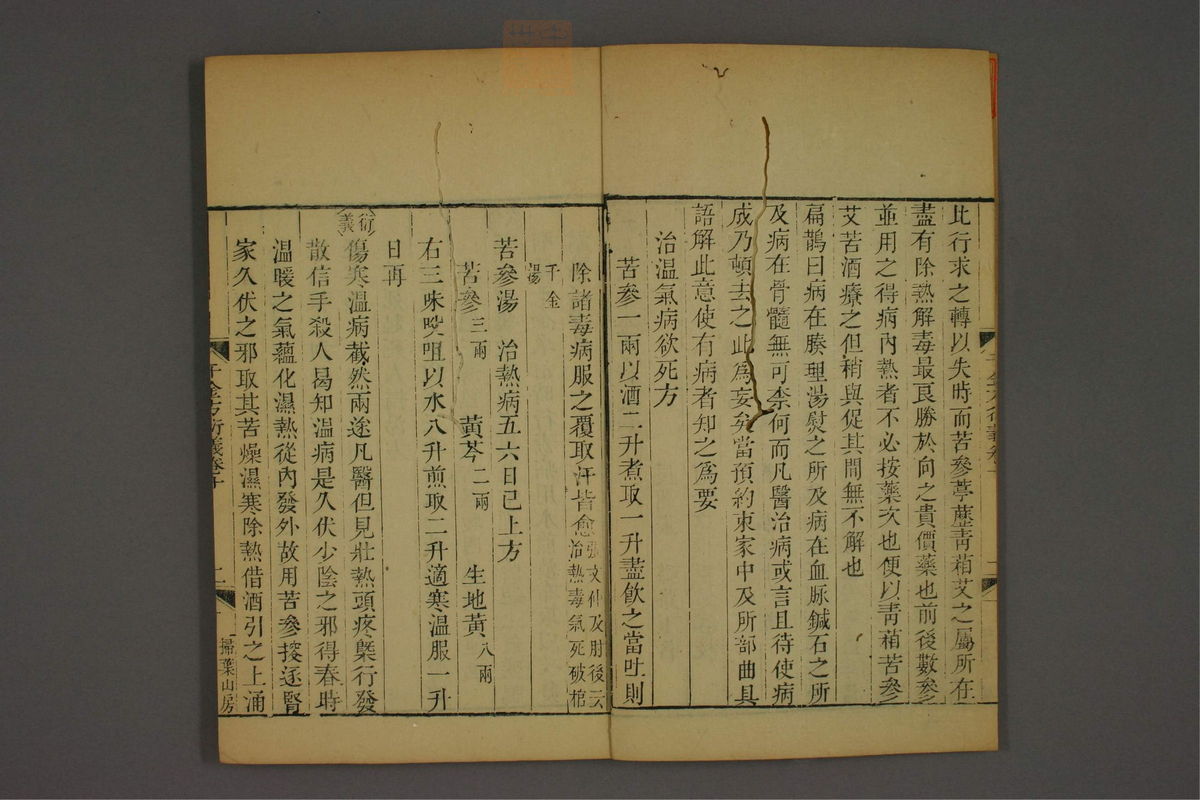 比行求之轉以失時而苦參葶藶青葙艾之屬所在
盡有除熱解毒最良勝於向之貴價藥也前後數參
並用之得病內熱者不必按藥次也便以青葙苦參
艾苦酒療之但稍與促其間無不解也
扁鵲曰病在腠理湯熨之所及病在血脉鍼石之所
及病在骨髓無可柰何而凡醫治病或言且待使病
成乃頓去之此為妄矣當預約束家中及所部曲具
語解此意使有病者知之為要
治溫氣病欲死方
苦參一兩以酒二升煮取一升盡飲之當吐則
除諸毒病服之覆取汗皆愈張文仲及肘後云
治熱毒氣死破棺
千金
湯
苦參湯 治熱病五六日已上方
苦參三兩 黃芩二兩 生地黃八兩
右三味㕮咀以水八升煎取二升適寒溫服一升
日再
衍義
傷寒溫病截然兩途凡醫但見壯熱頭疼槩行發
散信手殺人曷知溫病是久伏少陰之邪得春時
溫暖之氣蘊化濕熱從內發外故用苦參搜逐腎
家久伏之邪取其苦燥濕寒除熱借酒引之上涌
千金方衍義卷十
二
掃葉山房